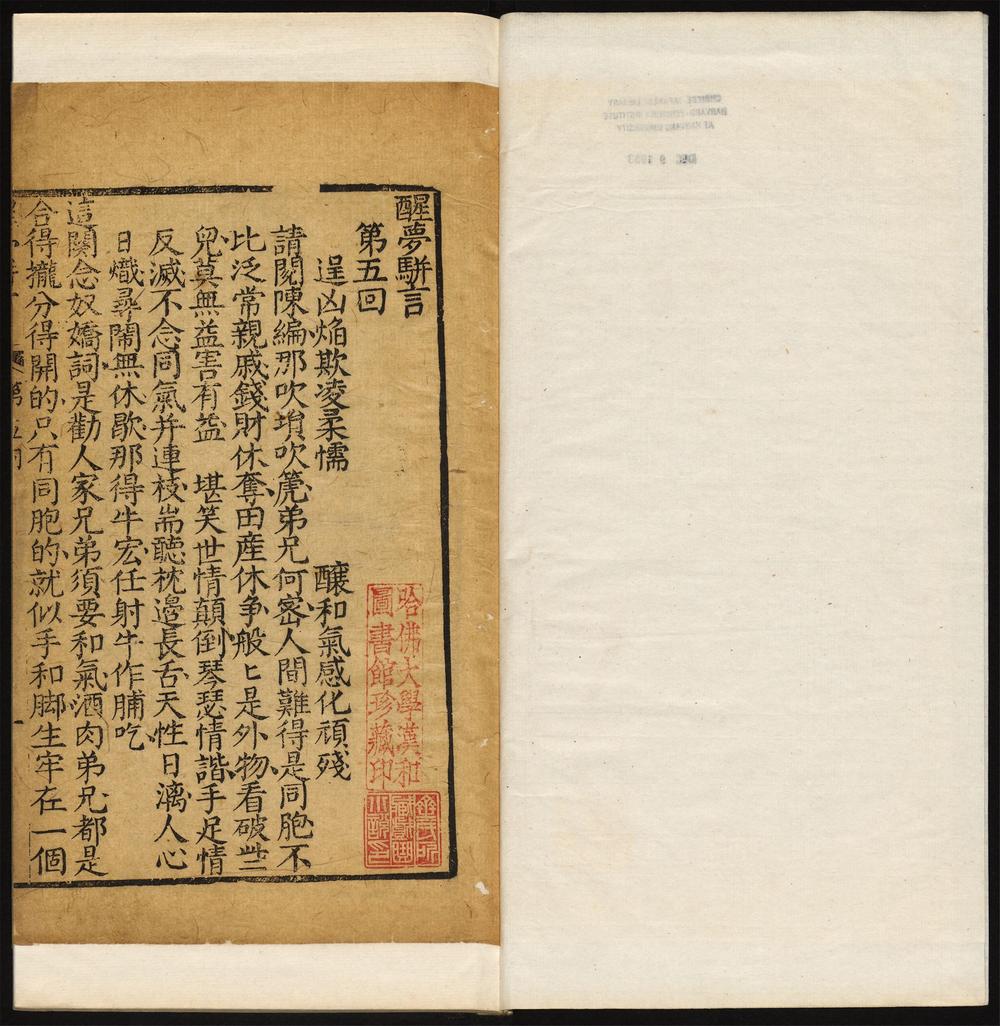 醒夢駢言
第五回
逞凶焰欺凌柔懦　醸和氣感化頑殘
請閱陳編那吹塤吹箎弟兄何密人間難得是同胞不
比泛常親戚錢財休奪田產休争般〻是外物看破些
兒莫無益害有益　堪笑世情顛倒琴瑟情諧手足情
反滅不念同氣并連枝耑聽枕邊長舌天性日漓人心
日熾尋鬧無休歇那得牛宏任射牛作脯吃
這闋念奴嬌詞是勸人家兄弟須要和氣酒肉弟兄都是
合得攏分得開的只有同胞的就似手和脚生牢在一個
第五囘
一
哈佛大學漢和
圖書館珍藏印
CHINESE JAPANESE LIBRARY
HARVARD-YENCHING INSTITUTE
AT HARVARD UNIVERSITY
DEC 9 1953